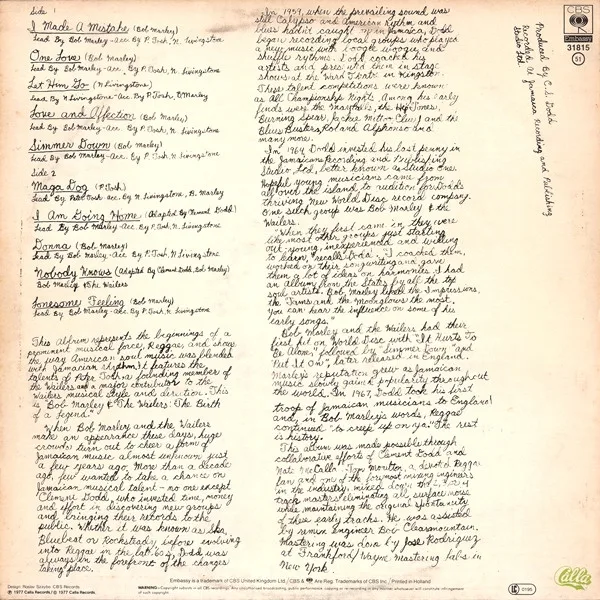 Side 1
I Made A Mistake (Bob Marley)
Lead By Bob Marley - Acc. By P. Tosh, N. Livingstone
One Love (Bob Marley)
Lead By Bob Marley - Acc. By P. Tosh, N. Livingstone
Let Him Go (N Livingstone)
Lead By N. Livingstone - Acc By P. Tosh, B. Marley
Love and Affection (Bob Marley)
Lead By Bob Marley - Acc. By P. Tosh, N. Livingstone
Simmer Down (Bob Marley)
Lead By Bob Marley - Acc. By P. Tosh, N. Livingstone
Side 2
Maga Dog (P. Tosh)
Lead By Peter Tosh Acc. By N. Livingstone, B. Marley
I Am Going Home (Adapted By Clement Dodd)
Lead By Bob Marley - Acc By P. Tosh, N. Livingstone
Donna (Bob Marley)
Lead By Bob Marley Acc. By P. Tosh, N. Livingstone
Nobody Knows (Adapted By Clement Dodd, Bob Marley)
Bob Marley & The Wailers
Lonesome Feeling (Bob Marley)
Lead By Bob Marley - Acc. By P. Tosh, N. Livingstone
This Album represents the beginnings of a
prominent musical force, Reggae, and shows
the way American soul music was blended
with Jamaican rhythm. It features the
talents of Peter Tosh, a founding member of
the Wailers and a major contributor to the
Wailers musical style and direction. This
is "Bob Marley & The Wailers: The Birth
of a Legend."
When Bob Marley and the Wailers
make an appearance these days, huge
crowds turn out to cheer a form of
Jamaican music almost unknown just
a few years ago. More than a decade
ago, few wanted to take a chance on
Jamaican musical talent - no one except
Clement Dodd, who invested time, money
and effort in discovering new groups
and bringing their records to the
public. Whether it was known as Ska,
Bluebeat or Rocksteady before evolving
into Reggae in the late 60s, Dodd was
always in the forefront of the changes
taking place.
In 1959, when the prevailing sound was
still Calypso and American Rhythm and
blues hadn't caught on in Jamaica, Dodd
began recording local groups who played
a new music with boogie woogie and
shuffle rhythms. Dodd coached his
artists and presented them in stage
shows at the Ward Theatre in Kingston.
These talent competitions were known
as All Championship Nights. Among his early
finds were the Maytals, the Hep Tones,
Burning Spear, Jackie Mitto (Jue) and the
Blues Busters, Roland Alphonso and
many more.
In 1964 Dodd invested his last penny in
the Jamaican Recording and Publishing
Studio, Ltd., better known as Studio One.
Hopeful young musicians came from
all over the island to audition for Dodd's
thriving New World Disc record company.
One such group was Bob Marley & the
Wailers.
"When they first came in they were
like most other groups just starting
out: young, inexperienced and willing
to learn," recalls Dodd. "I coached them,
worked on their songwriting and gave
them a lot of ideas on harmonies. I had
an album from the States by all the top
soul artists. Bob Marley liked the Impressions,
the Tams and the Moonglows the most.
You can hear the influence on some of his
early songs."
Bob Marley and the Wailers had their
first hit on World Disc with "It Hurts To
Be Alone," followed by "Simmer Down" and
"Put It On", later released in England.
Marley's reputation grew as Jamaican
music slowly gained popularity throughout
the world. In 1967, Dodd took his first
troop of Jamaican musicians to England
and, in Bob Marley's words, Reggae
continued "to creep up on ya." The rest
is history.
This album was made possible through
collaborative efforts of Clement Dodd and
Nate McCalla. Tom Moulton, a devoted Reggae
fan and one of the foremost mixing engineers
in the industry, mixed down
track masters, eliminating all surface noise
while maintaining the original spontaneity
of these early tracks. He was assisted
by remix engineer Bob Clearmountain.
Mastering was done by Jose Rodriguez
at Frankford/Wayne Mastering Labs in
New York.
Produced By C.S. Dodd
Recorded At Jamaica Recording and Publishing
Studio Ltd.
CBS
Embassy
31815
51
Design: Robin Szozbo CBS Records
℗ 1977 Calla Records. © 1977 Calla Records.
Embassy is a trademark of CBS United Kingdom Ltd. / CBS & Are Reg. Trademarks of CBS Inc. / Printed in Holland
WARNING: Copyright subsists in all CBS recordings.
Calla